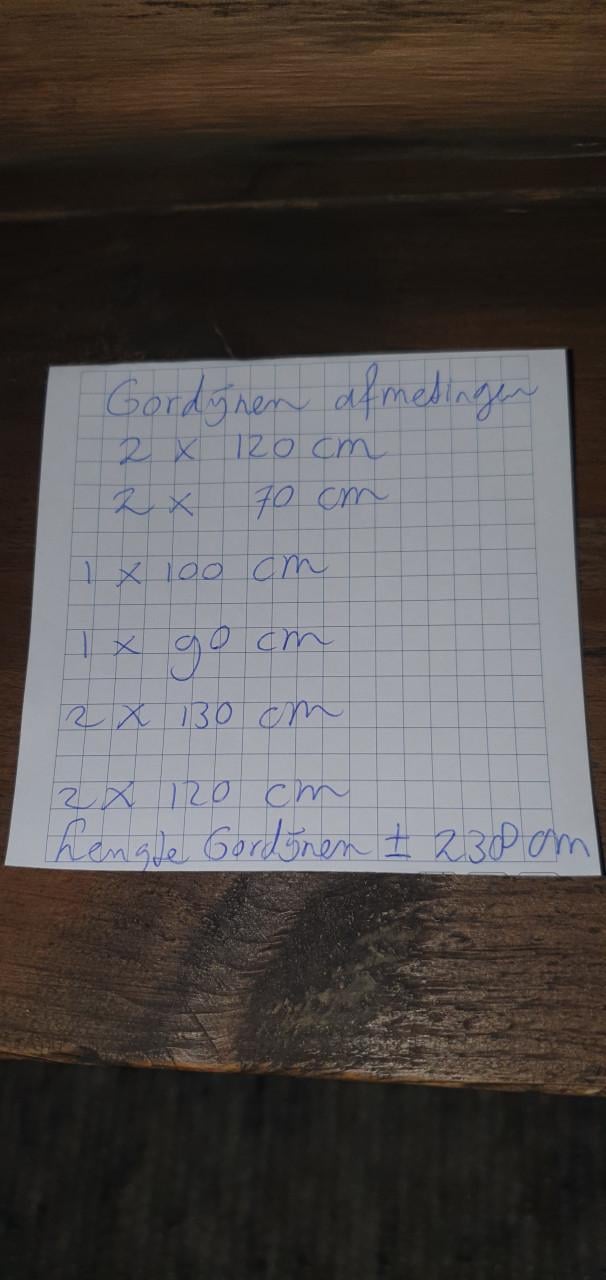 Gordijnen afmetingen
2 x 120 cm
2 x 70 cm
1 x 100 cm
1 x 90 cm
2 x 130 cm
2 x 120 cm
Lengte Gordijnen ± 238 cm